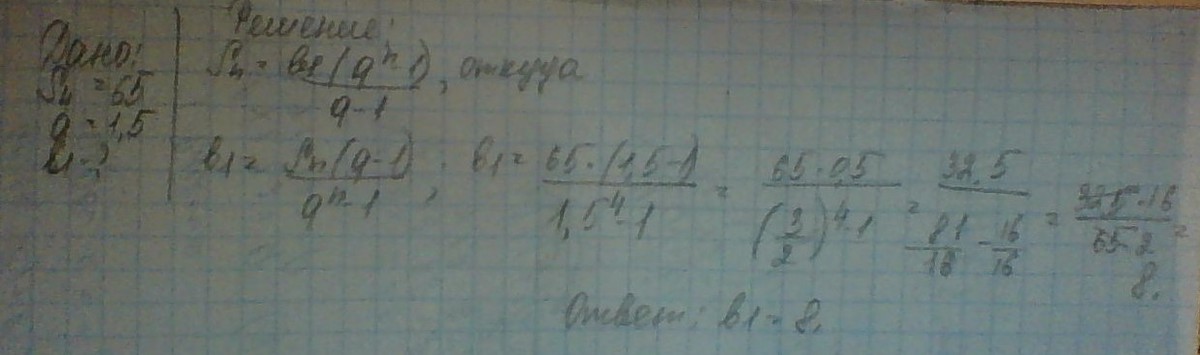 Дано:
S₄ = 65
q = 1,5
b₁ - ?
Решение:
Sₙ = b₁(qⁿ-1)/(q-1), откуда
b₁ = Sₙ(q-1)/(qⁿ-1); b₁ = 65·(1,5-1)/(1,5⁴-1) = 65·0,5/((3/2)⁴-1) = 32,5/(81/16 - 16/16) = 32,5·16/65 =
8.
Ответ: b₁ = 8.